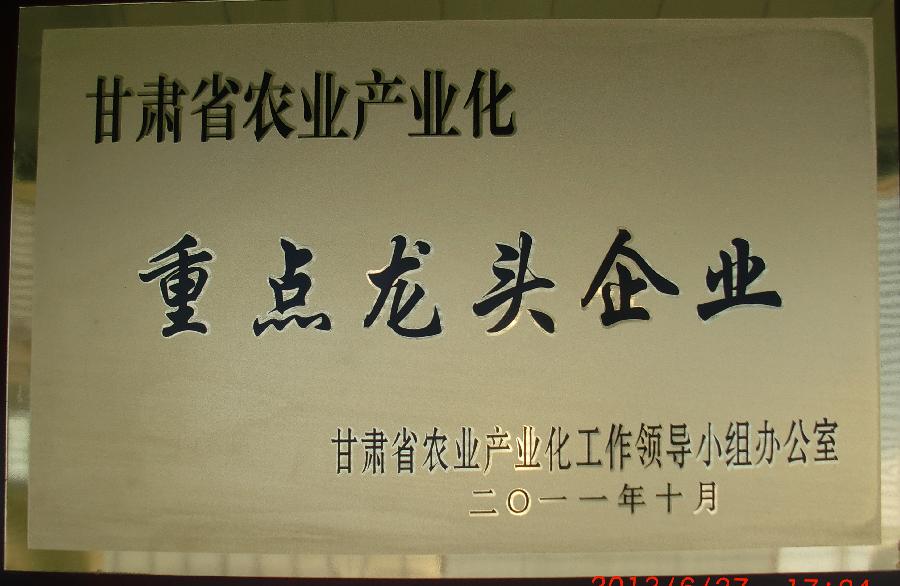 甘肃省农业产业化
重点龙头企业
甘肃省农业产业化工作领导小组办公室
二〇一一年十月